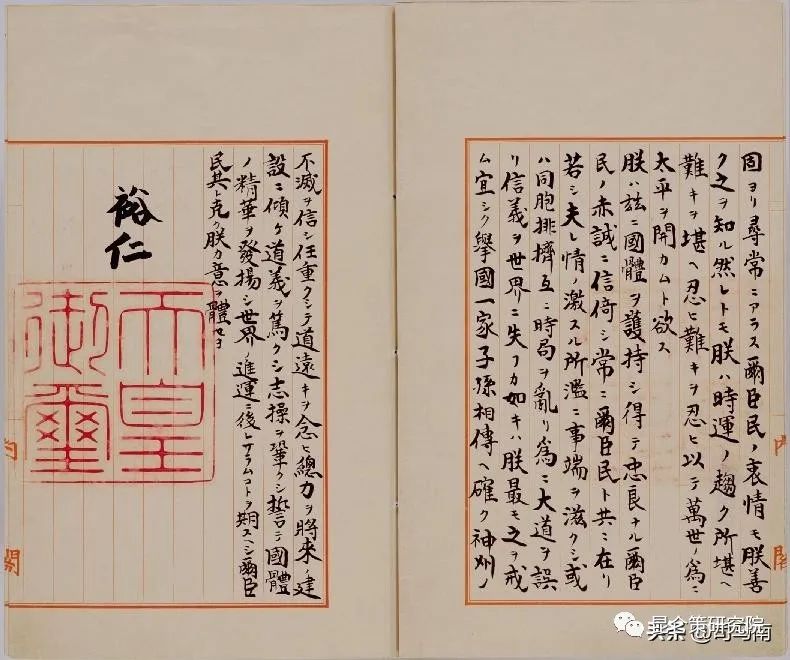 固ヨリ尋常ニアラス爾臣民ノ衷情モ朕善
ク之ヲ知ル然レトモ朕ハ時運ノ趨ク所堪ヘ
難キヲ堪ヘ忍ヒ難キヲ忍ヒ以テ萬世ノ爲ニ
太平ヲ開カムト欲ス
朕ハ茲ニ國體ヲ護持シ得テ忠良ナル爾臣
民ノ赤誠ニ信倚シ常ニ爾臣民ト共ニ在リ
若シ夫レ情ノ激スル所濫ニ事端ヲ滋クシ或
ハ同胞排擠互ニ時局ヲ亂リ爲ニ大道ヲ誤
リ信義ヲ世界ニ失フカ如キハ朕最モ之ヲ戒
ム宜シク擧國一家子孫相傳ヘ確ク神州ノ
不滅ヲ信シ任重クシテ道遠キヲ念ヒ總力ヲ將來ノ建
設ニ傾ケ道義ヲ篤クシ志操ヲ鞏クシ誓テ國體
ノ精華ヲ發揚シ世界ノ進運ニ後レサラムコトヲ期スヘシ爾臣
民其レ克ク朕カ意ヲ體セヨ
裕仁
天皇
御璽
内閣
研究院
头条